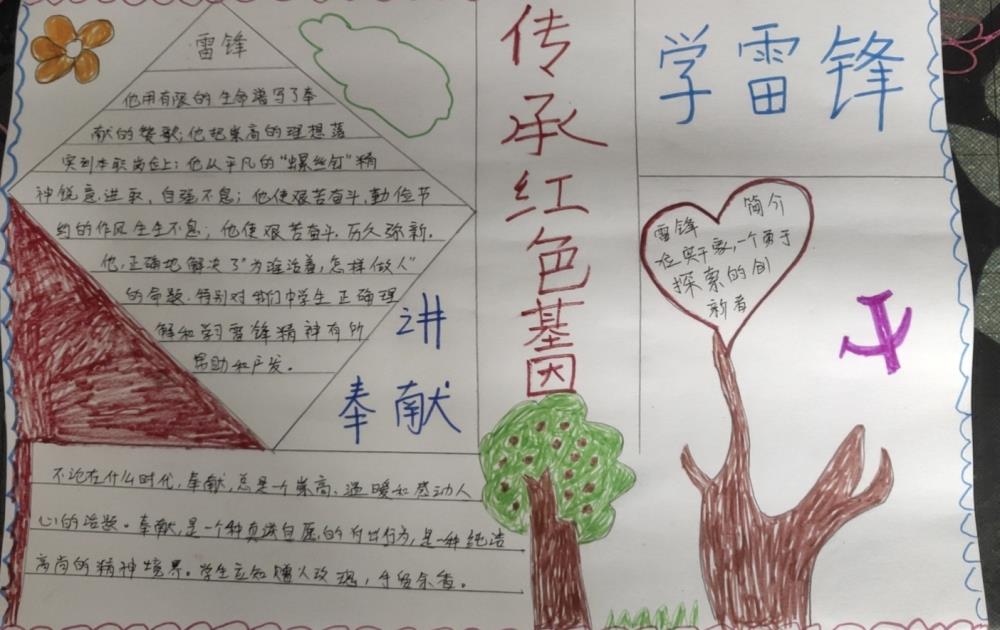 雷锋
他用有限的生命谱写了奉
献的赞歌；他把崇高的理想落
实到本职岗位上；他从平凡的“螺丝钉”精
神锐意进取，自强不息；他使艰苦奋斗，勤俭节
约的作风生生不息；他使艰苦奋斗，万久弥新。
他，正确地解决了“为谁活着，怎样做人”
的命题，特别对我们中学生正确理
解和学习雷锋精神有所
帮助和启发。
讲
奉献
不论在什么时代，奉献，总是一个崇高、温暖和感动人
心的话题。奉献，是一个种真诚自愿的付出行为，是一种纯洁
高尚的精神境界。学生应知赠人玫瑰，手留余香。
传承红色基因
学雷锋
简介
雷锋
位实干家，一个勇于
探索的创
新者